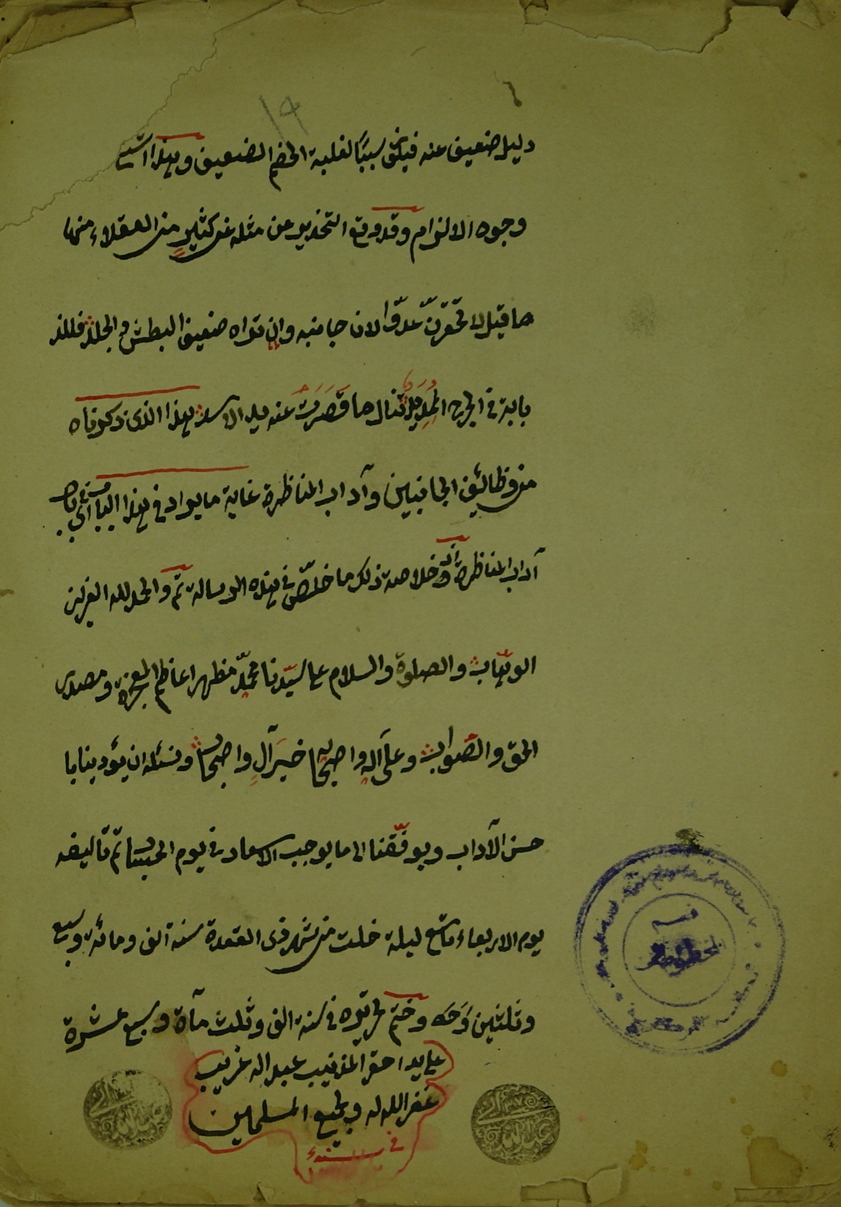 دليل ضعيف عنه فيبقى سببًا لغلبة الخصم الضعيف وهذا اشنع
وجوه الالزام وقد وقع التحذير عن مثله عن كثيرٍ من العقلاء منها
ما قيل لا تحقرنّ عدوًّا لان جانبه وان تراه ضعيف البطش والجلد فللذ
بابة في الجرح المديد يد تنال ما قَصَرَتْ عنه يد الاسد هذا الذى ذكرناه
من وظائف الجانبين وآداب المناظرة غاية ما يراد في هذا الباب
آداب المناظرة وخلاصة ذلك ما خلّص في هذه الرسالة تمّ والحمد لله العزيز
الوهّاب والصلوة والسلام على سيّدنا محمّد مظهر اعاظم المعجزة ومصدر
الحق والصّواب وعلى آله واصحابه خيرَ آلٍ واصحاب ونسئله ان يؤدبنا با
حسن الآداب ويوفّقنا الى ما يوجب الاسعاد في يوم الحساب تمّ تأليفه
يوم الاربعاء تاسع ليلة خلت من شهر ذى القعدة سنة الف ومائة وسبع
وثلثين وختم تحريره في سنة الف وثلث مأة وسبع عشرة
على يد احقر المذنبين عبد الله غريب
غفر الله له ولجميع المسلمين
في سنة
قسم
المخطوطات